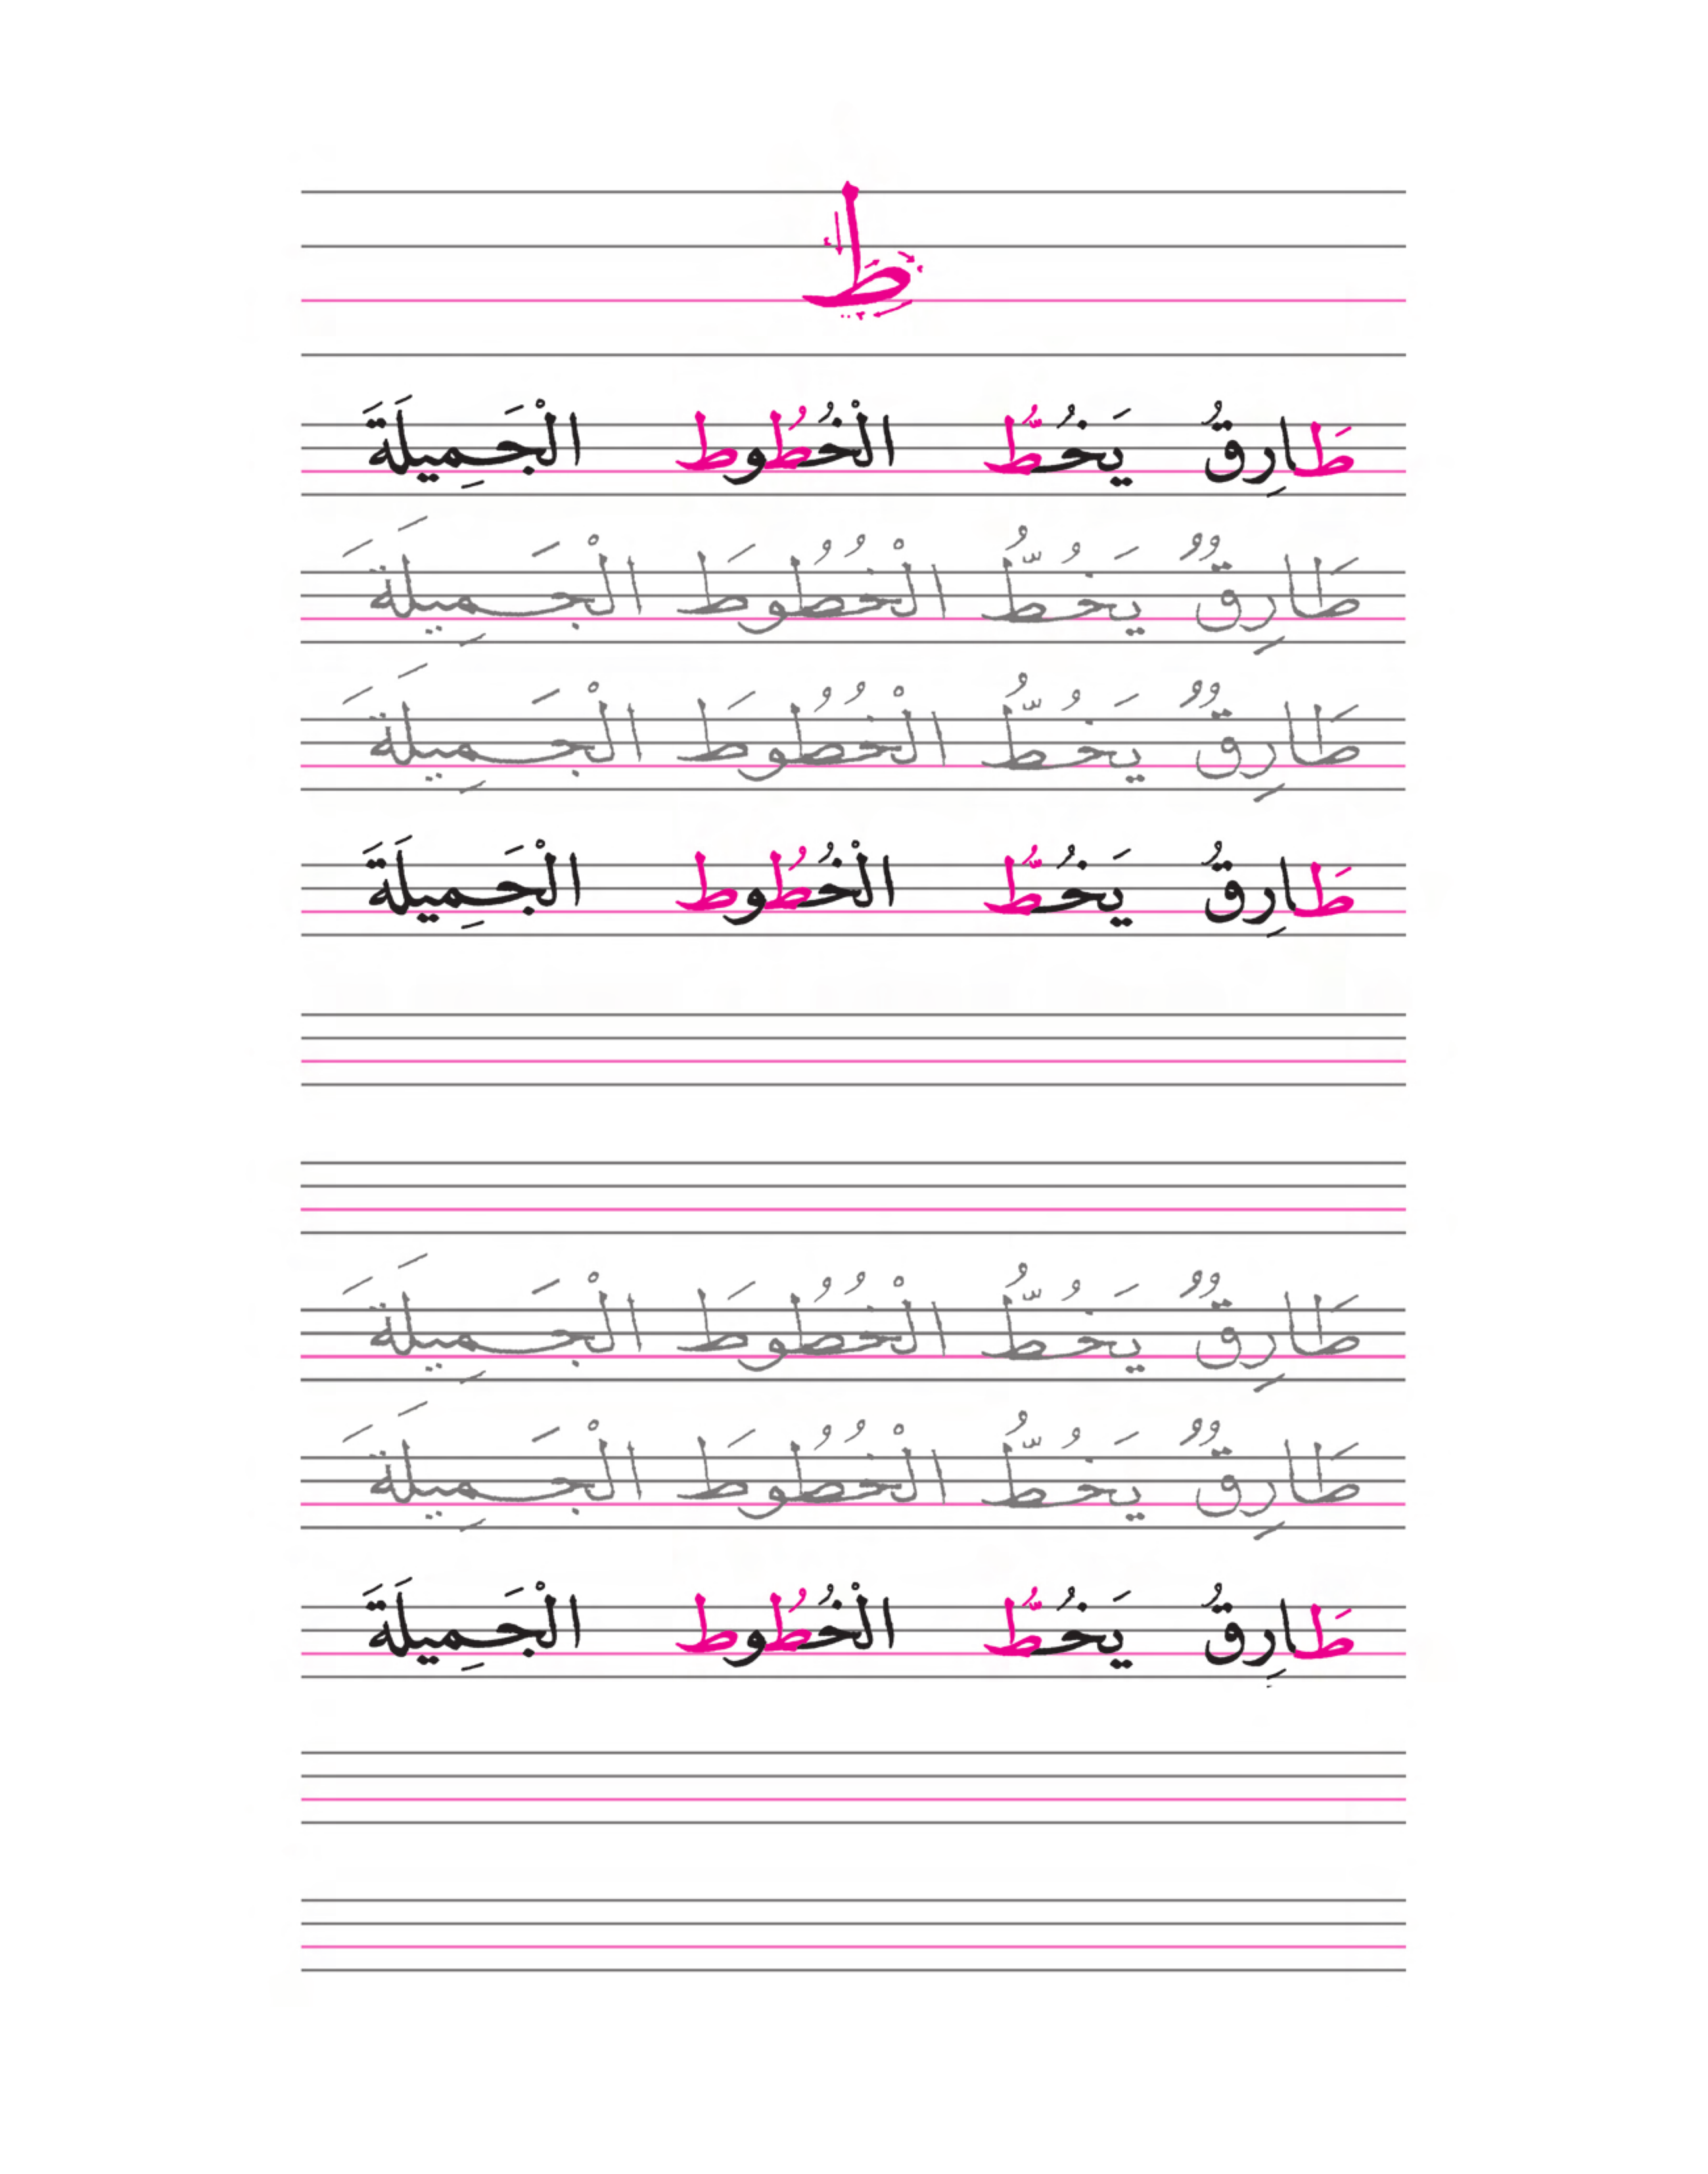 ط
طَارِقُ يَخُطُّ الْخُطُوط الْجَمِيلَةَ
طَارِقٌ يَخُطُّ الْخُطُوطَ الْجَمِيلَةَ
طَارِقٌ يَخُطُّ الْخُطُوطَ الْجَمِيلَةَ
طَارِقُ يَخُطُّ الْخُطُوط الْجَمِيلَةَ
طَارِقٌ يَخُطُّ الْخُطُوطَ الْجَمِيلَةَ
طَارِقٌ يَخُطُّ الْخُطُوطَ الْجَمِيلَةَ
طَارِقُ يَخُطُّ الْخُطُوط الْجَمِيلَةَ